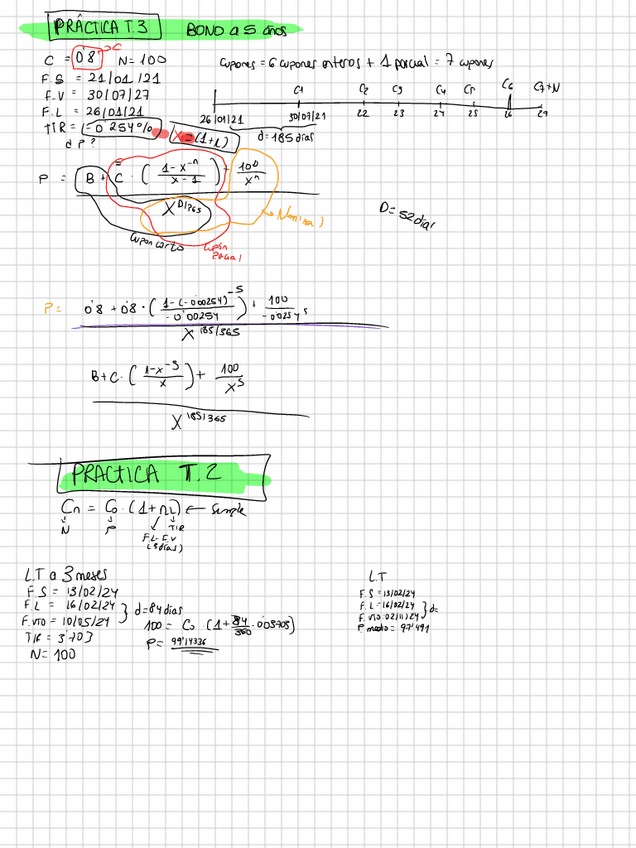 PRÁCTICA T.3 BONO a 5 años
C = 0'8 → C N = 100
F.S = 21/01/21
F.V = 30/07/27
F.L = 26/01/21
TIR = (-0'254%) X = (1+r)
d P?
Cupones = 6 cupones enteros + 1 parcial = 7 cupones
C1 C2 C3 C4 C5 C6 C7+N
26/01/21 30/07/21 22 23 24 25 26 27
d = 185 días
P = B + C · ( 1-x^-n / x-1 ) + 100 / x^n
X^D/365
→ Nominal
Cupon corto
D = 52 dias
P = 0'8 + 0'8 · ( 1-(-0'00254)^-5 / -0'00254 ) + 100 / -0'0254^5
X^185/365
B + C · ( 1-x^-5 / x ) + 100 / x^5
X^185/365
PRACTICA T.2
Cn = C0 · (1+ni) ← Simple
N P TIR
F.L-F.V
(días)
L.T a 3 meses
F.S = 13/02/24
F.L = 16/02/24
F.VTO = 10/05/24 } d = 84 dias
TIR = 3'703
N = 100
100 = C0 · (1 + 84/360 · 0'03703)
P = 99'14336
L.T
F.S = 13/02/24
F.L = 16/02/24
F. VTO 02/11/24 } d =
P medio = 97'491